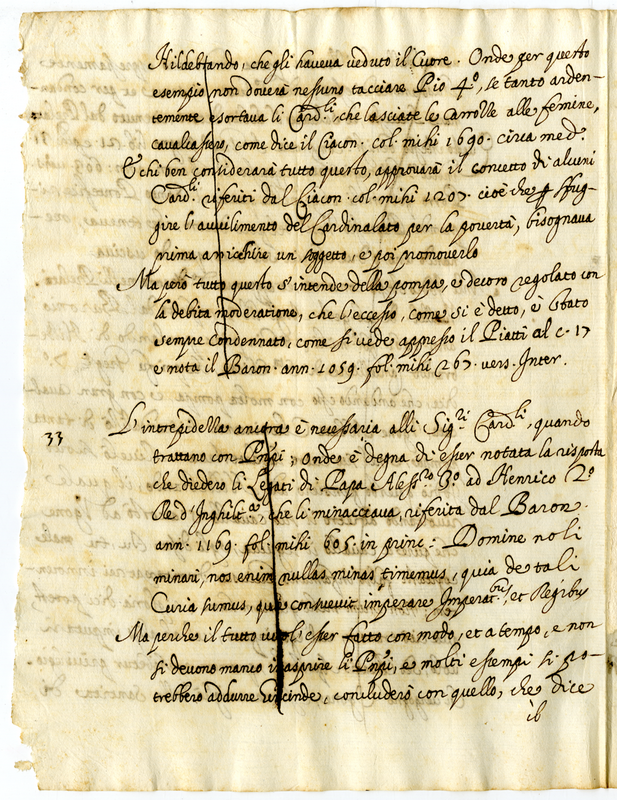 Hildebrando, che gli haveva veduto il Cuore. Onde per questo
esempio non doverà nessuno tacciare Pio 4.º, se tanto arden-
temente esortava li Card.li, che lasciate le carrozze alle femine,
cavalcassero, come dice il Ciacon. col. mihi 1690. circa med.
E chi ben considerarà tutto questo, approvarà il concetto di alcuni
Card.li riferiti dal Ciacon. col. mihi 1207. cioè che sfug-
gire l'avvilimento del Cardinalato per la povertà, bisognava
prima arricchire un soggetto, e poi promoverlo
Ma però tutto questo s'intende della pompa, e decoro regolato con
la debita moderatione, che l'eccesso, come si è detto, è stato
sempre condennato, come si vede appresso il Piatti al c. 17
e nota il Baron. ann. 1059. fol. mihi 267. vers. Inter.
33 L'intrepidezza ancora è necessaria alli Sig.ri Card.li, quando
trattano con Pnpi; onde è degna di esser notata la risposta
che diedero li Legati di Papa Aless.ro 3º ad Henrico 2º
Re d'Inghilt.ra, che li minacciava, riferita dal Baron.
ann. 1169. fol. mihi 605. in princ: Domine noli
minari, nos enim nullas minas timemus, quia de tali
Curia sumus, quae consuevit imperare Imperat.bus, et Regibus
Ma perche il tutto vuol esser fatto con modo, et a tempo, e non
si devono manco inasprire li Pnpi, e molti essempi si po-
trebbero addurre vicinde, concluderò con quello, che dice
il